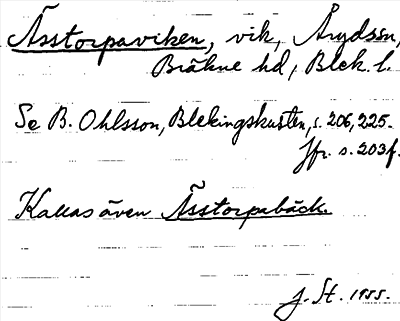 Åsstorpaviken, vik, Åryds sn,
Bräkne hd, Blek. l.
Se B. Ohlsson, Blekingskusten, s. 206, 225.
Jfr. s. 203 f.
Kallas även Åsstorpabäck.
J. St. 1955.